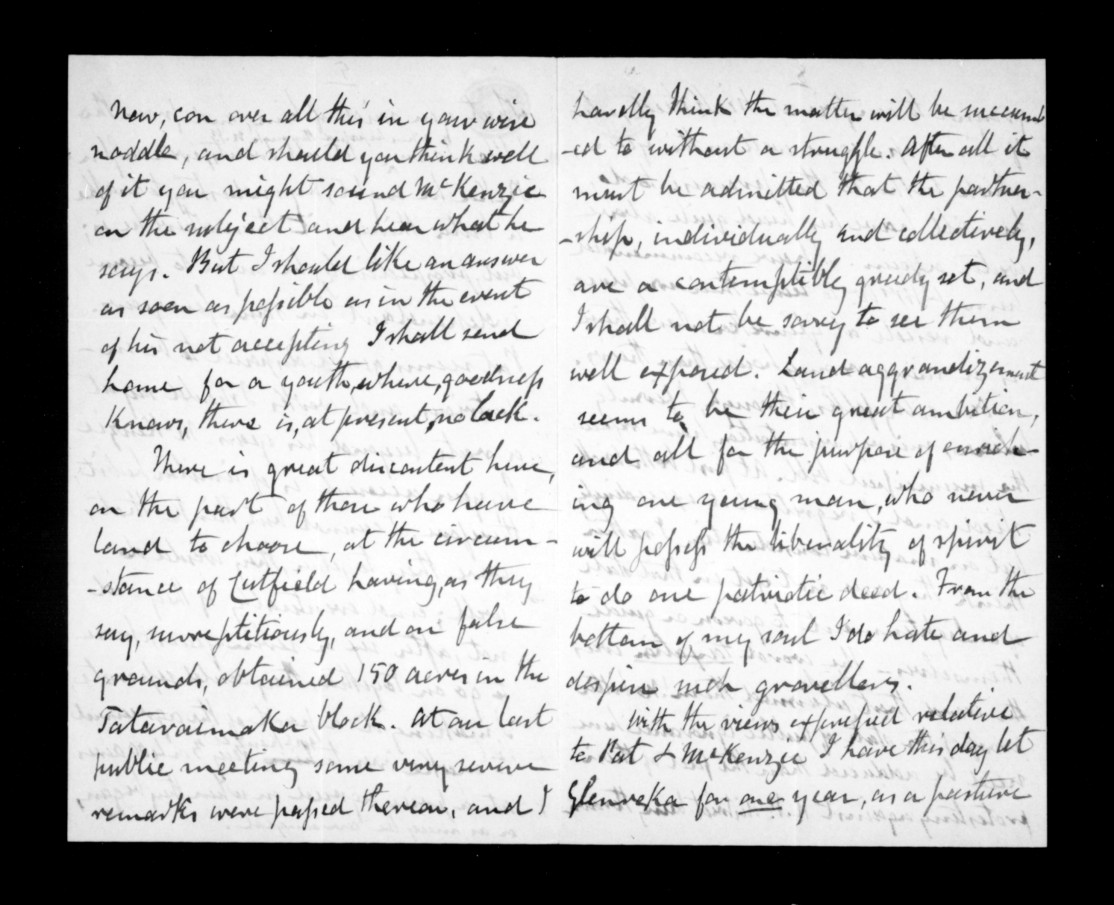 Now, con over all this in your wise
noddle, and should you think well
of it you might sound McKenzie
on the subject and hear what he
says. But I should like an answer
as soon as possible as in the event
of his not accepting I shall send
home for a youth, where, goodness
knows, there is, at present, no lack.
There is great discontent here,
on the part of those who have
land to choose, at the circum-
-stance of Cutfield having, as they
say, surreptitiously, and on false
grounds, obtained 150 acres in the
Tataraimaka block. At our last
public meeting some very severe
remarks were passed thereon, and I
hardly think the matter will be succumb
-ed to without a struggle. After all it
must be admitted that the partner-
-ship, individually and collectively,
are a contemptibly greedy set, and
I shall not be sorry to see them
well exposed. Land aggrandizement
seems to be their great ambition,
and all for the purpose of enrich-
ing one young man, who never
will possess the liberality of spirit
to do one patriotic deed. From the
bottom of my soul I do hate and
despise such grovellers.
With the views expressed relative
to Pat & McKenzie I have this day let
Glenreka for one year, as a pasture